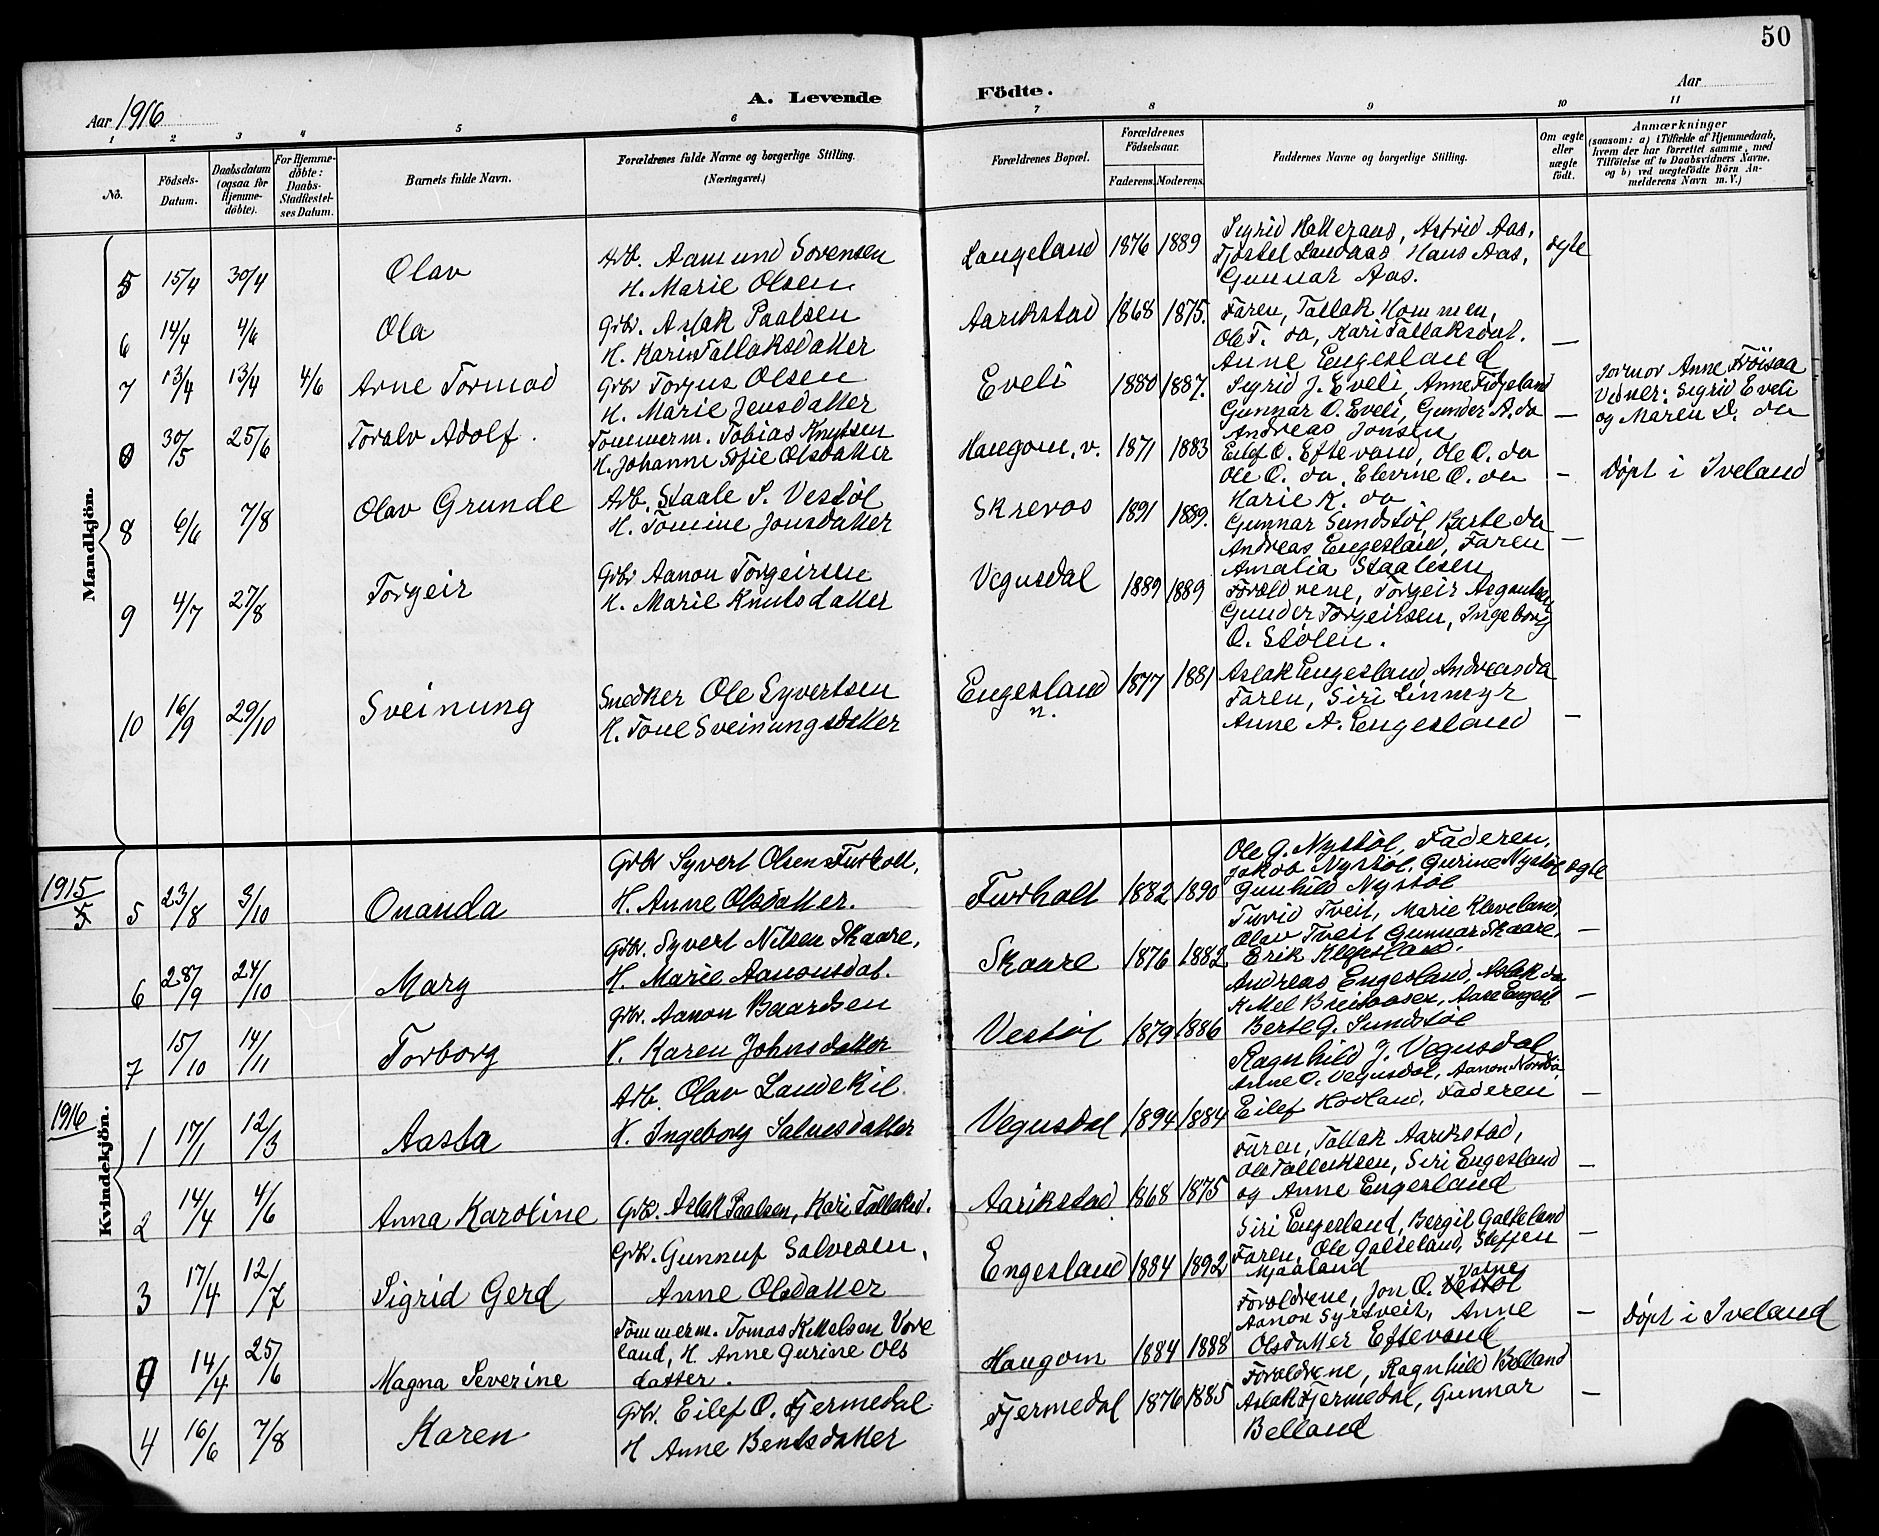 50
Aar 1916
A. Levende Födte.
Aar
1 2 3 4 5 6 7 8 9 10 11
No.
Födsels-Datum.
Daabsdatum (ogsaa for Hjemme-döbte).
For Hjemme-döbte: Daabs-Stadfestel-ses Datum.
Barnets fulde Navn.
Forældrenes fulde Navne og borgerlige Stilling. (Næringsvei.)
Forældrenes Bopæl.
Forældrenes Födselsaar.
Faderens. Moderens.
Faddernes Navne og borgerlige Stilling.
Om ægte eller uægte födt.
Anmærkninger
(saasom: a) i Tilfælde af Hjemmedaab,
hvem der har forrettet samme, med
Tilföielse af to Daabsvidners Navne,
og b) ved uægtefödte Börn An-
melderens Navn m. V.)
Mandkjön.
5 15/4 30/4 Olav
Arb. Aamund Sørensen
H. Marie Olsen
Langeland 1876 1889
Sigrid Hatteraas, Astrid Aas,
Tjøstel Landaas Hans Aas,
Gunnar Aas.
ægte
6 14/4 4/6 Ola
Grbr. Aslak Paalsen
H. Kari Tallaksdatter
Aarikstad 1868 1875.
Faren, Tallak Hommen,
Ole T. do, Kari Tallaksdat.
Anne Engesland
—
7 13/4 13/4 4/6 Arne Tormod
Grbr Torjus Olsen
H. Marie Jensdatter
Eveli 1880 1887.
Sigrid J. Eveli, Anne Fidjeland
Gunnar O. Eveli, Gunder A. do
Andreas Jonsen
—
Jormor Anne Frøisaa
Vidner: Sigrid Eveli
og Maren D. do
0 30/5 25/6 Toralv Adolf.
Tømmerm. Tobias Knutsen
H. Johanne Sofie Olsdatter
Haugom, v. 1871 1883
Eilef O. Eftevand, Ole O. do
Ole O. do, Elevine O. do
Marie K. do
—
Døpt i Iveland
8 6/6 7/8 Olav Grunde
Arb. Staale S. Vestøl
H. Tomine Jonsdatter
Skrevos 1891 1889.
Gunnar Sundstøl, Berte do
Andreas Engesland, Faren
Amalia Staalesen
—
9 4/7 27/8 Torgeir
Grbr Aanon Torgeirsen
H. Marie Knutsdatter
Vegusdal 1889 1889
Foreldrene, Torgeir
Gunder Torgeirsen, Ingeborg
O. Stølen.
10 16/9 29/10 Sveinung
Snedker Ole Syvertsen
H. Tone Sveinungsdatter
Engesland n. 1877 1881
Aslak Engesland, Andreas do
Faren, Siri Linmyr
Anne A. Engesland
—
Kvindekjön.
1915
5 5 23/8 3/10 Onanda
Grbr Syvert Olsen Furholt,
H. Anne Olsdatter.
Furholt 1882 1890
Ole G. Nystøl, Faderen,
Jakob Nystøl, Gurine Nystøl
Gunhild Nystøl
ægte
6 28/9 24/10 Marg
Grbr. Syvert Nilsen Skaare,
H. Marie Aanonsdat.
Skaare 1876 1882
Turid Tveit, Marie Kleveland,
Olav Tveit Gunnar Skaare,
Erik
—
7 15/10 14/11 Torborg
Grbr. Aanon Baardsen
H. Karen Johnsdatter
Vestøl 1879 1886
Andreas Engesland, Aslak do
Berte G. Sundstøl
—
1916
1 17/1 12/3 Aasta
Arb. Olav Landekil
H. Ingeborg Salvesdatter
Vegusdal 1894 1884
Ragnhild J. Vegusdal
Anne O. Vegusdal, Aanon
Eilef Hovland, Faderen
—
2 14/4 4/6 Anna Karoline
Grbr. Aslak Paalsen, Kari Tallaksd.
Aarikstad 1868 1875
Faren, Tallak Aarikstad,
Ole Tallaksen, Siri Engesland
og Anne Engesland
—
3 17/4 12/7 Sigrid Gerd
Grbr. Gunnuf Salvesen,
Anne Olsdatter
Engesland 1884 1892
Siri Engesland, Bergit Galteland
Faren, Ole Galteland, Steffen
Mjaaland
—
0 14/4 25/6 Magna Severine
Tømmerm. Tomas Kittelsen Vore
land, H. Anne Gurine Ols
datter.
Haugom 1884 1888
Foreldrene, Jon O. Vestøl
Aanon Syrtveit, Anne
Olsdatter Eftevand
—
Døpt i Iveland
4 16/6 7/8 Karen
Grbr. Eilef O. Fjermedal
H Anne Bentsdatter
Fjermedal 1876 1885
Foreldrene, Ragnhild Belland
Aslak Fjermedal, Gunnar
Belland
—